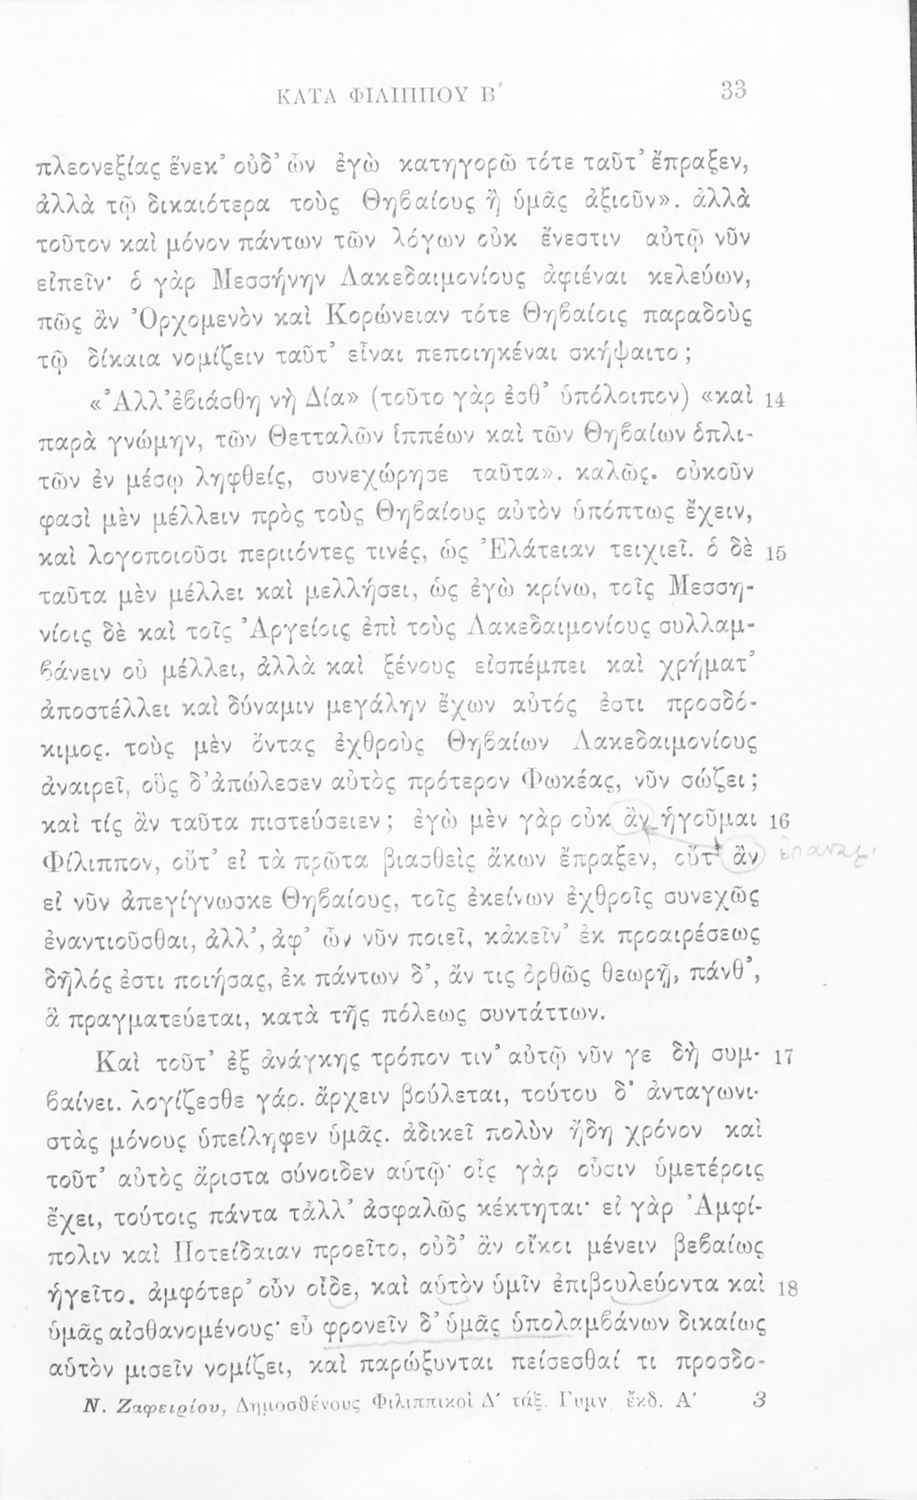 ΚΑΤΑ ΦΙΛΙΠΠΟΥ Β΄ 33
πλεονεξίας ἕνεκ’ οὐδ’ ὧν ἐγὼ κατηγορῶ τότε ταῦτ’ ἔπραξεν,
ἀλλὰ τῷ δικαιότερα τοὺς Θηβαίους ἢ ὑμᾶς ἀξιοῦν». ἀλλὰ
τοῦτον καὶ μόνον πάντων τῶν λόγων οὐκ ἔνεστιν αὐτῷ νῦν
εἰπεῖν· ὁ γὰρ Μεσσήνην Λακεδαιμονίους ἀφιέναι κελεύων,
πῶς ἂν Ὀρχομενὸν καὶ Κορώνειαν τότε Θηβαίοις παραδοὺς
τῷ δίκαια νομίζειν ταῦτ’ εἶναι πεποιηκέναι σκήψαιτο ;
«Ἀλλ’ἐβιάσθη νὴ Δία» (τοῦτο γὰρ ἐσθ’ ὑπόλοιπον) «καὶ 14
παρὰ γνώμην, τῶν Θετταλῶν ἱππέων καὶ τῶν Θηβαίων ὁπλι-
τῶν ἐν μέσῳ ληφθείς, συνεχώρησε ταῦτα». καλῶς. οὐκοῦν
φασὶ μὲν μέλλειν πρὸς τοὺς Θηβαίους αὐτὸν ὑπόπτως ἔχειν,
καὶ λογοποιοῦσι περιιόντες τινές, ὡς Ἐλάτειαν τειχιεῖ. ὁ δὲ 15
ταῦτα μὲν μέλλει καὶ μελλήσει, ὡς ἐγὼ κρίνω, τοῖς Μεσση-
νίοις δὲ καὶ τοῖς Ἀργείοις ἐπὶ τοὺς Λακεδαιμονίους συλλαμ-
βάνειν οὐ μέλλει, ἀλλὰ καὶ ξένους εἰσπέμπει καὶ χρήματ’
ἀποστέλλει καὶ δύναμιν μεγάλην ἔχων αὐτός ἐστι προσδό-
κιμος. τοὺς μὲν ὄντας ἐχθροὺς Θηβαίων Λακεδαιμονίους
ἀναιρεῖ, οὓς δ’ἀπώλεσεν αὐτὸς πρότερον Φωκέας, νῦν σώζει ;
καὶ τίς ἂν ταῦτα πιστεύσειεν ; ἐγὼ μὲν γὰρ οὐκ ἂν ἡγοῦμαι 16
Φίλιππον, οὔτ’ εἰ τὰ πρῶτα βιασθεὶς ἄκων ἔπραξεν, οὔτ’ ἂν
εἰ νῦν ἀπεγίγνωσκε Θηβαίους, τοῖς ἐκείνων ἐχθροῖς συνεχῶς
ἐναντιοῦσθαι, ἀλλ’, ἀφ’ ὧν νῦν ποιεῖ, κἀκεῖν’ ἐκ προαιρέσεως
δῆλός ἐστι ποιήσας, ἐκ πάντων δ’, ἄν τις ὀρθῶς θεωρῇ, πάνθ’,
ἃ πραγματεύεται, κατὰ τῆς πόλεως συντάττων.
Καὶ τοῦτ’ ἐξ ἀνάγκης τρόπον τιν’ αὐτῷ νῦν γε δὴ συμ- 17
βαίνει. λογίζεσθε γάρ. ἄρχειν βούλεται, τούτου δ’ ἀνταγωνι-
στὰς μόνους ὑπείληφεν ὑμᾶς. ἀδικεῖ πολὺν ἤδη χρόνον καὶ
τοῦτ’ αὐτὸς ἄριστα σύνοιδεν αὑτῷ· οἷς γὰρ οὖσιν ὑμετέροις
ἔχει, τούτοις πάντα τἆλλ’ ἀσφαλῶς κέκτηται· εἰ γὰρ Ἀμφί-
πολιν καὶ Ποτείδαιαν προεῖτο, οὐδ’ ἂν οἴκοι μένειν βεβαίως
ἡγεῖτο. ἀμφότερ’ οὖν οἶδε, καὶ αὑτὸν ὑμῖν ἐπιβουλεύοντα καὶ 18
ὑμᾶς αἰσθανομένους· εὖ φρονεῖν δ’ ὑμᾶς ὑπολαμβάνων δικαίως
αὑτὸν μισεῖν νομίζει, καὶ παρώξυνται πείσεσθαί τι προσδο-
Ν. Ζαφειρίου, Δημοσθένους Φιλιππικοὶ Δ΄ τάξ. Γυμν. ἔκδ. Α΄ 3